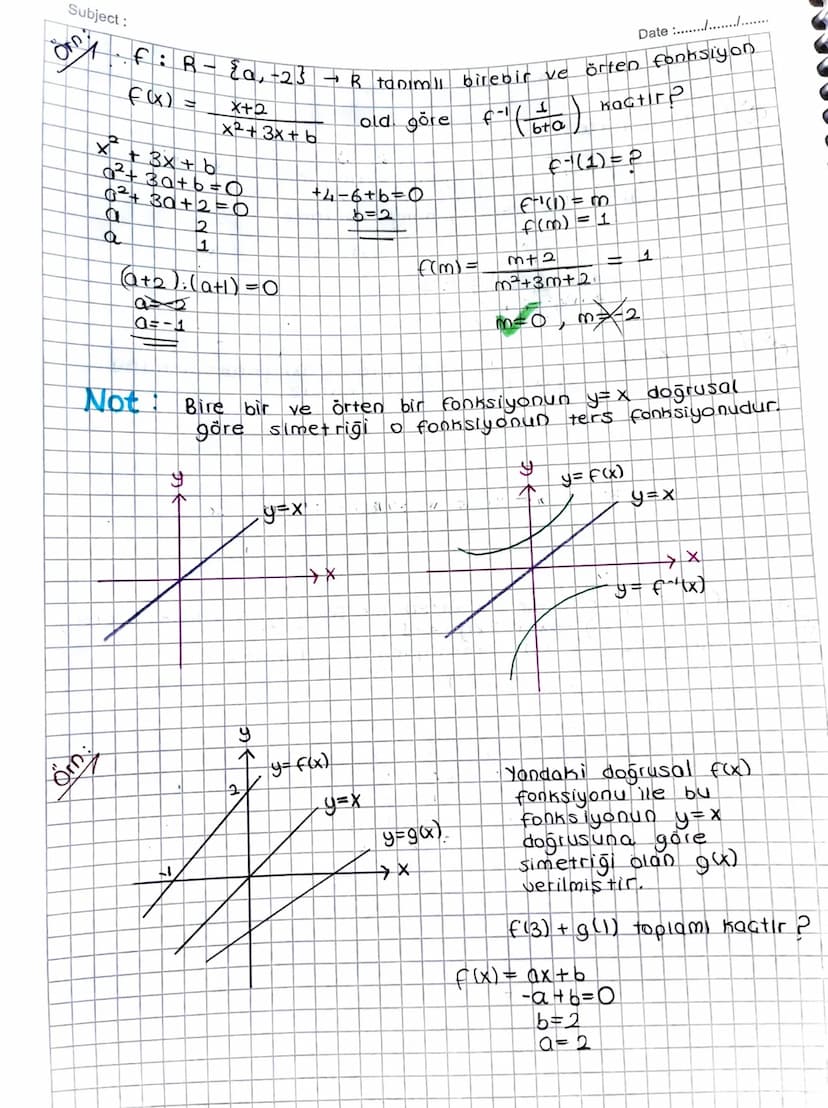 Subject :
Date :......./......./.......
Örn: f : R - {a, -2} → R tanımlı birebir ve örten fonksiyon
f(x) = x+2 / x²+3x+b old. göre f⁻¹(1/b+a) kaçtır?
x² + 3x + b
a²+ 3a+b=0
a²+ 3a+2=0
a 2
a 1
(a+2).(a+1)=0
a=-2
a=-1
+4-6+b=0
b=2
f⁻¹(1)=?
f⁻¹(1) = m
f(m) = 1
f(m) = m+2 / m²+3m+2 = 1
m=0 , m=-2
Not : Bire bir ve örten bir fonksiyonun y=x doğrusal
göre simetriği o fonksiyonun ters fonksiyonudur.
y
y=x
x
y
y=f(x)
y=x
x
y=f⁻¹(x)
Örn:
y
y=f(x)
2
y=x
y=g(x).
-1
x
Yandaki doğrusal f(x)
fonksiyonu ile bu
fonksiyonun y=x
doğrusuna göre
simetriği olan g(x)
verilmiştir.
f(3) + g(1) toplamı kaçtır ?
f(x) = ax+b
-a+b=0
b=2
a=2